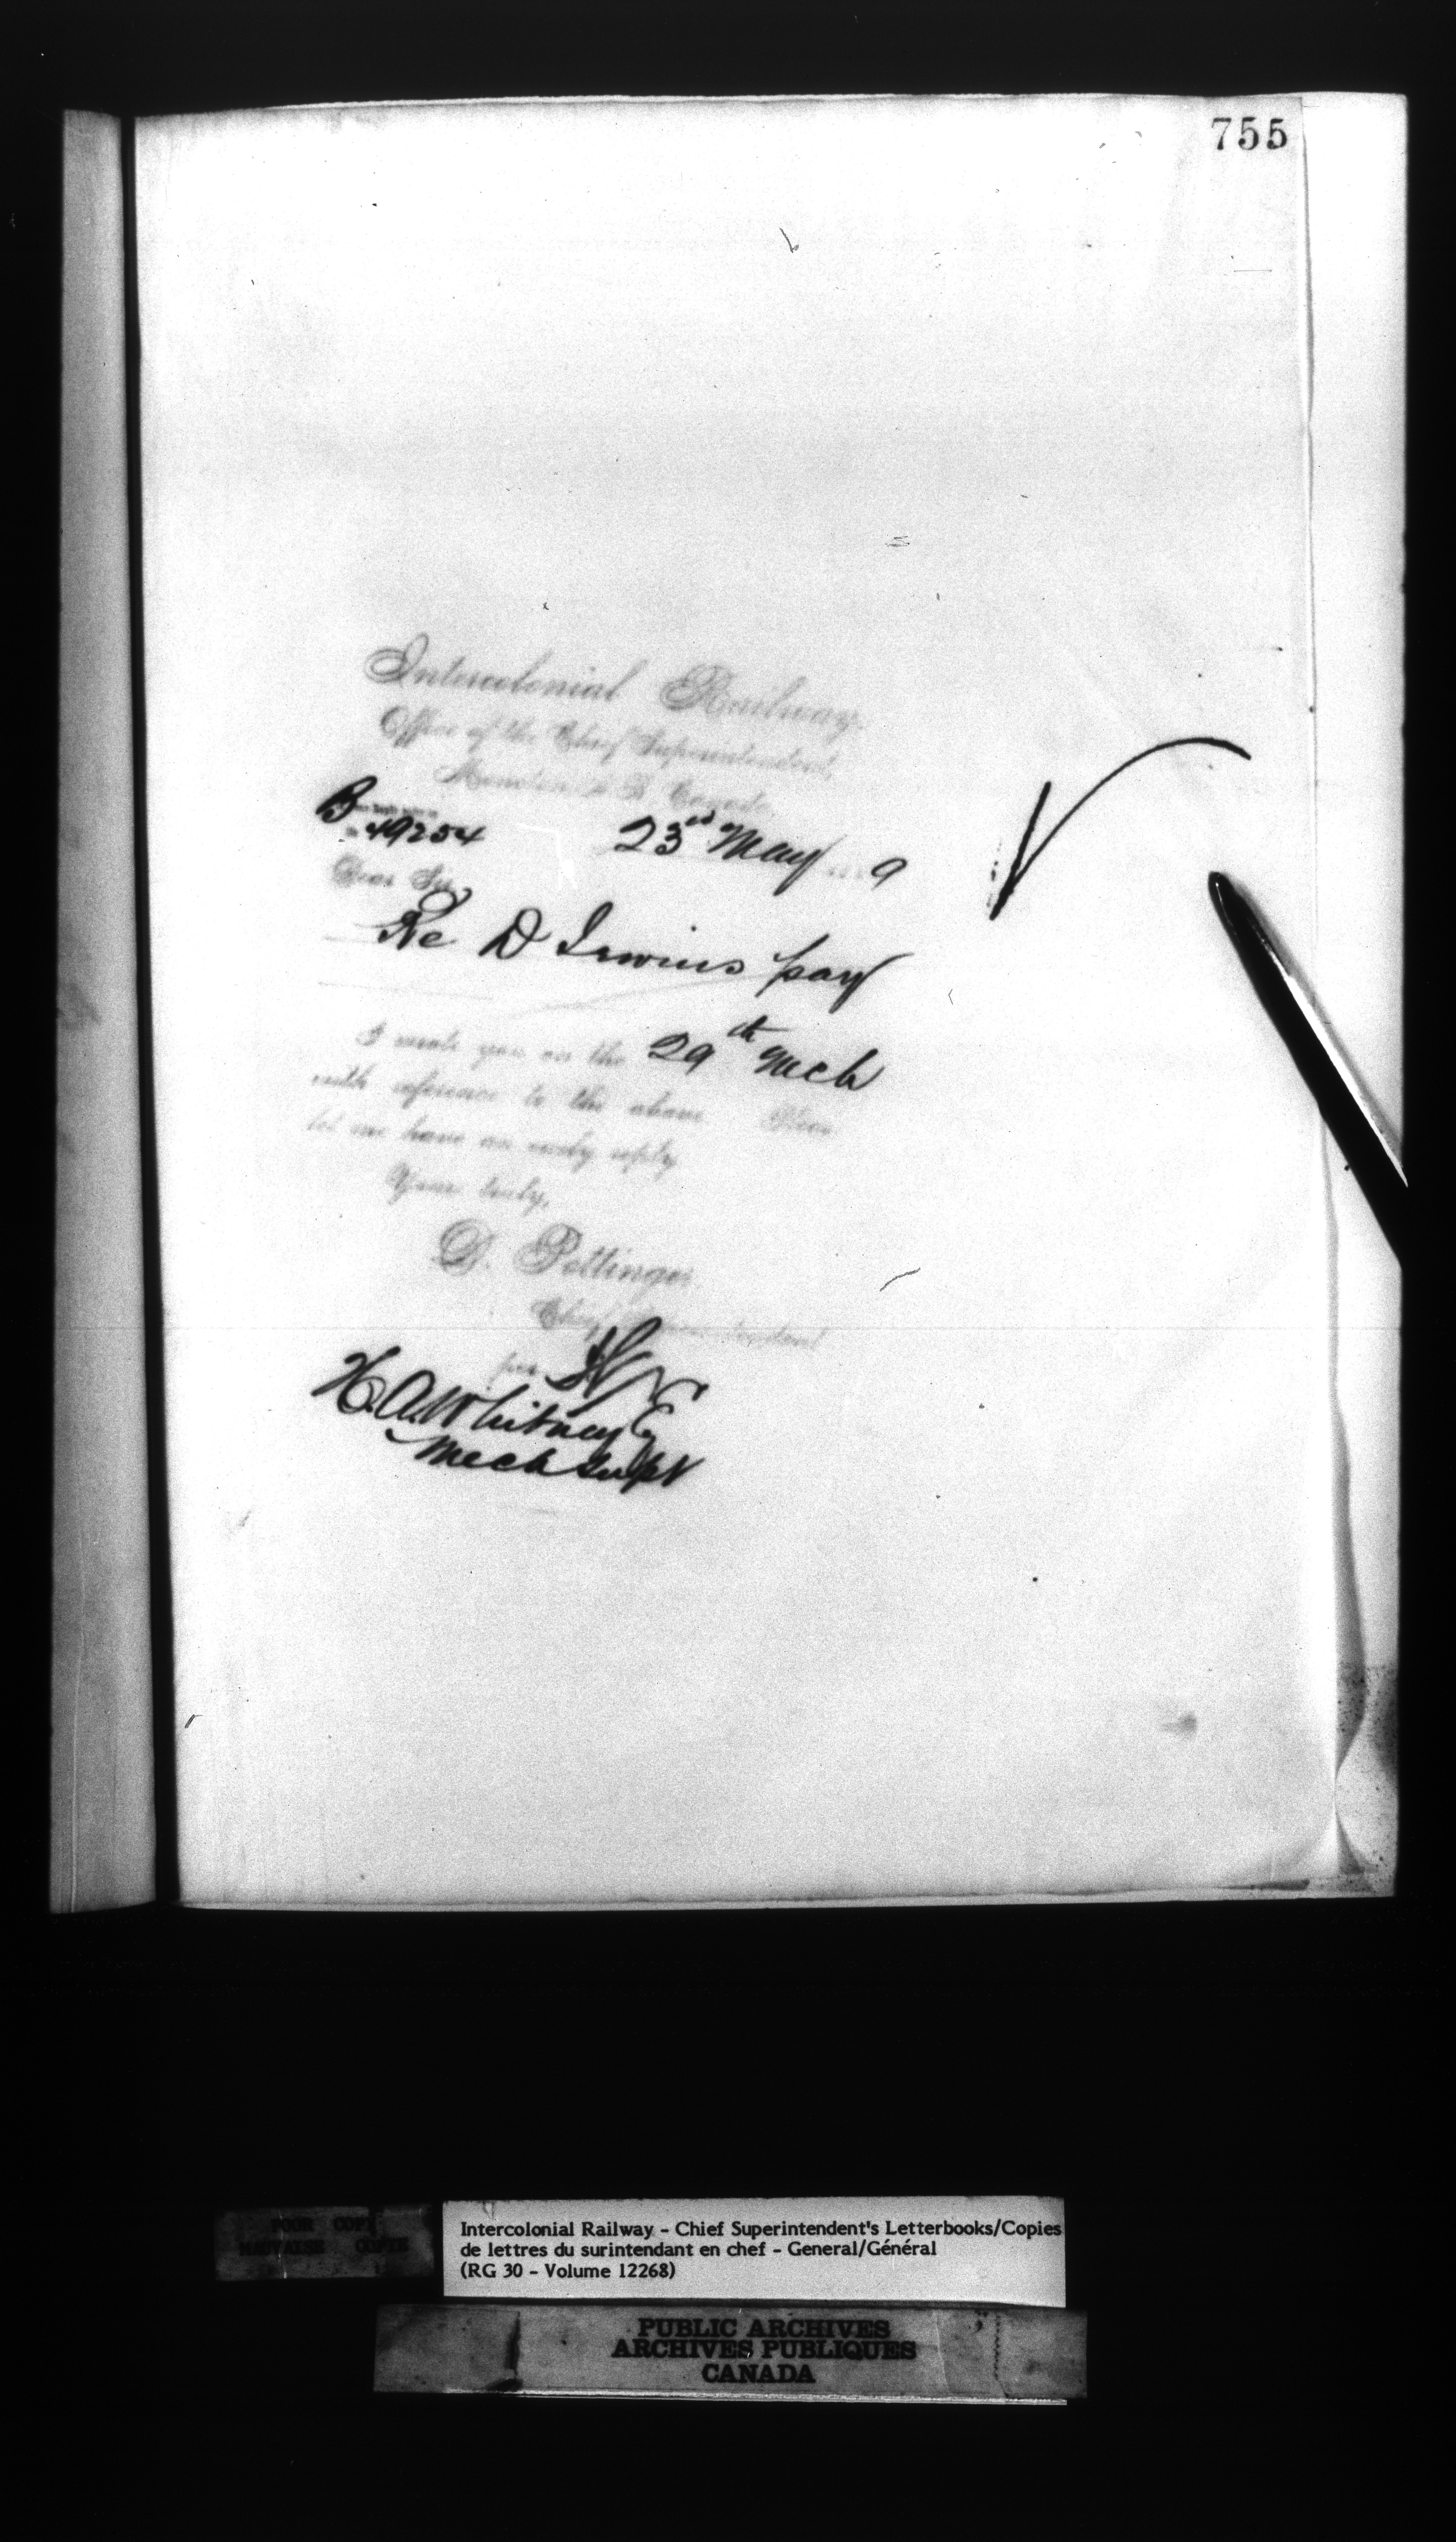 755
Intercolonial Railway.
Office of the Chief Superintendent,
Moncton N. B. Canada
B
49254 23rd May 9
Dear Sir
Re D Irwins pay
I wrote you on the 29th Mch
with reference to the above. Please
let me have an early reply
Yours truly,
D. Pottinger
Chief Superintendent
per
H. A. Whitney Esq
Mech Supt
POOR COPY
MAUVAISE COPIE
Intercolonial Railway - Chief Superintendent's Letterbooks/Copies
de lettres du surintendant en chef - General/Général
(RG 30 - Volume 12268)
PUBLIC ARCHIVES
ARCHIVES PUBLIQUES
CANADA